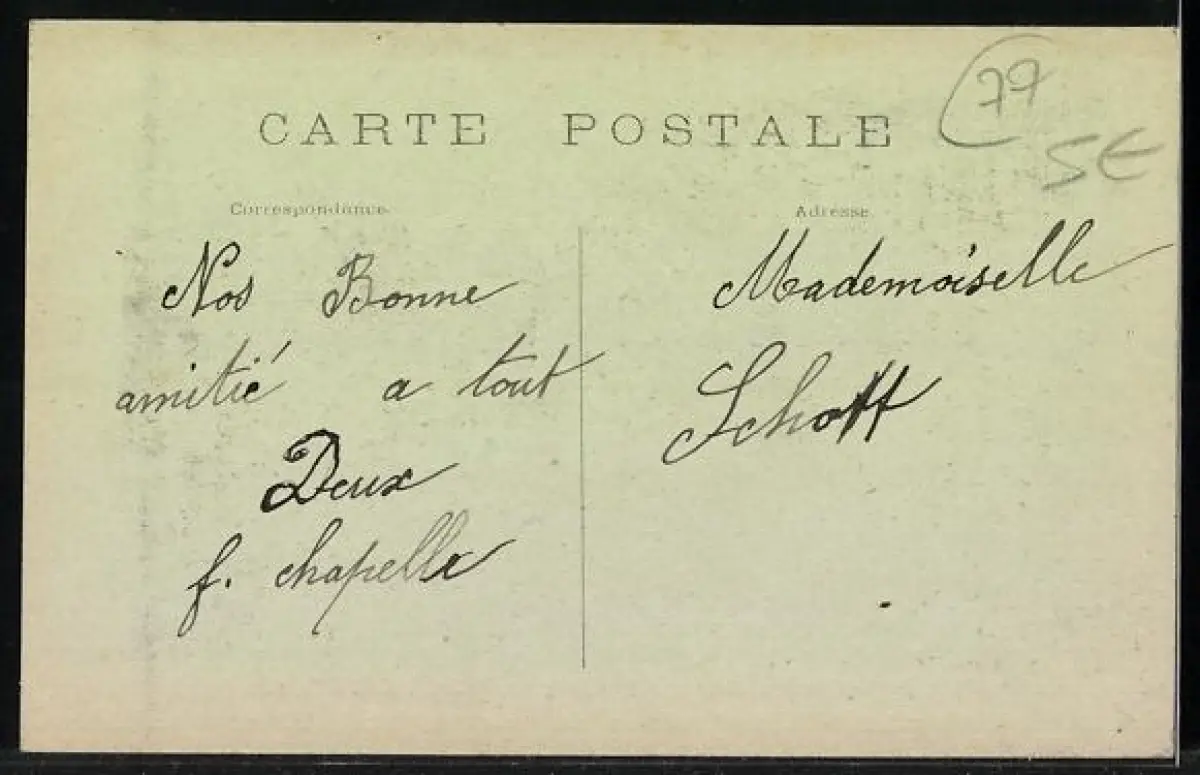 CARTE POSTALE
77
5€
Correspondance
Adresse
Nos Bonne
amitié a tout
Deux
f. chapelle
Mademoiselle
Schott